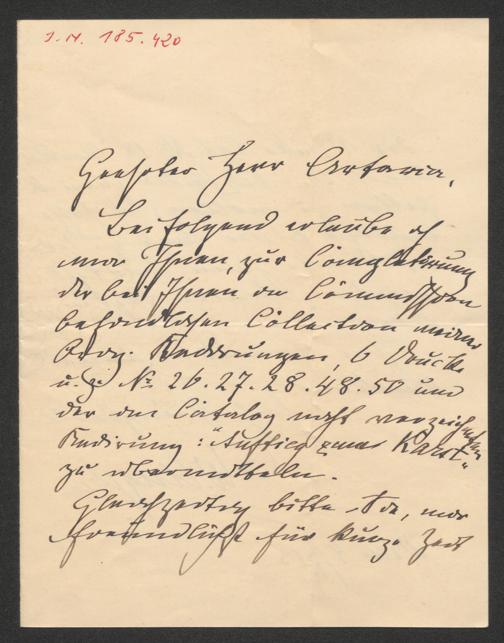 I.N. 185.420
Geehrter Herr Artaria,
Beifolgend erlaube ich
mir Ihnen, zur Completirung
der bei Ihnen in Commission
befindlichen Collection meiner
Orig. Radirungen, 6 Drucke
u. z. No 26. 27. 28. 48. 50 und
der im Catalog nicht verzeichneten
Radirung: "Aufstieg zum Karst"
zu übermitteln.
Gleichzeitig bitte Sie, mir
freundlichst für kurze Zeit